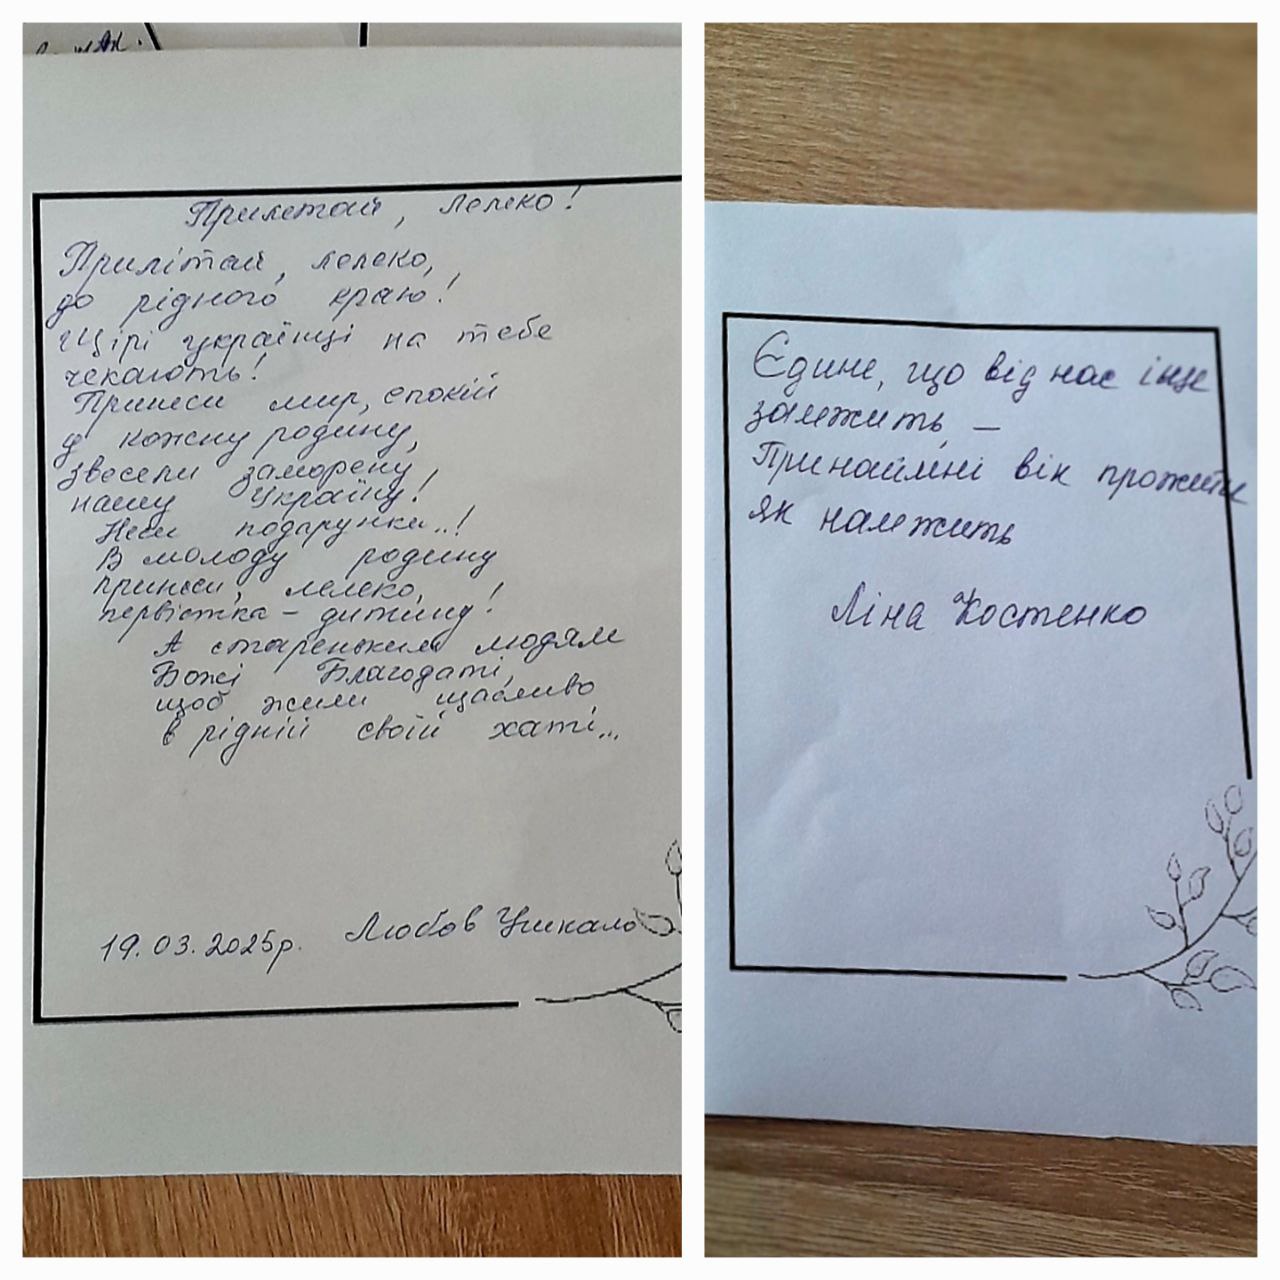 Прилетай, лелеко!
Прилітай, лелеко,
до рідного краю!
Щирі українці на тебе
чекають!
Принеси мир, спокій
у кожну родину,
звесели заморену
нашу Україну!
Неси подарунки..!
В молоду родину
принеси, лелеко,
первістка - дитину!
А стареньким людям
Божі Благодаті,
щоб жили щасливо
в рідній своїй хаті...
19.03.2025р. Любов Ушкало
Єдине, що від нас іще
залежить, -
Принаймні вік прожити
як належить
Ліна Костенко